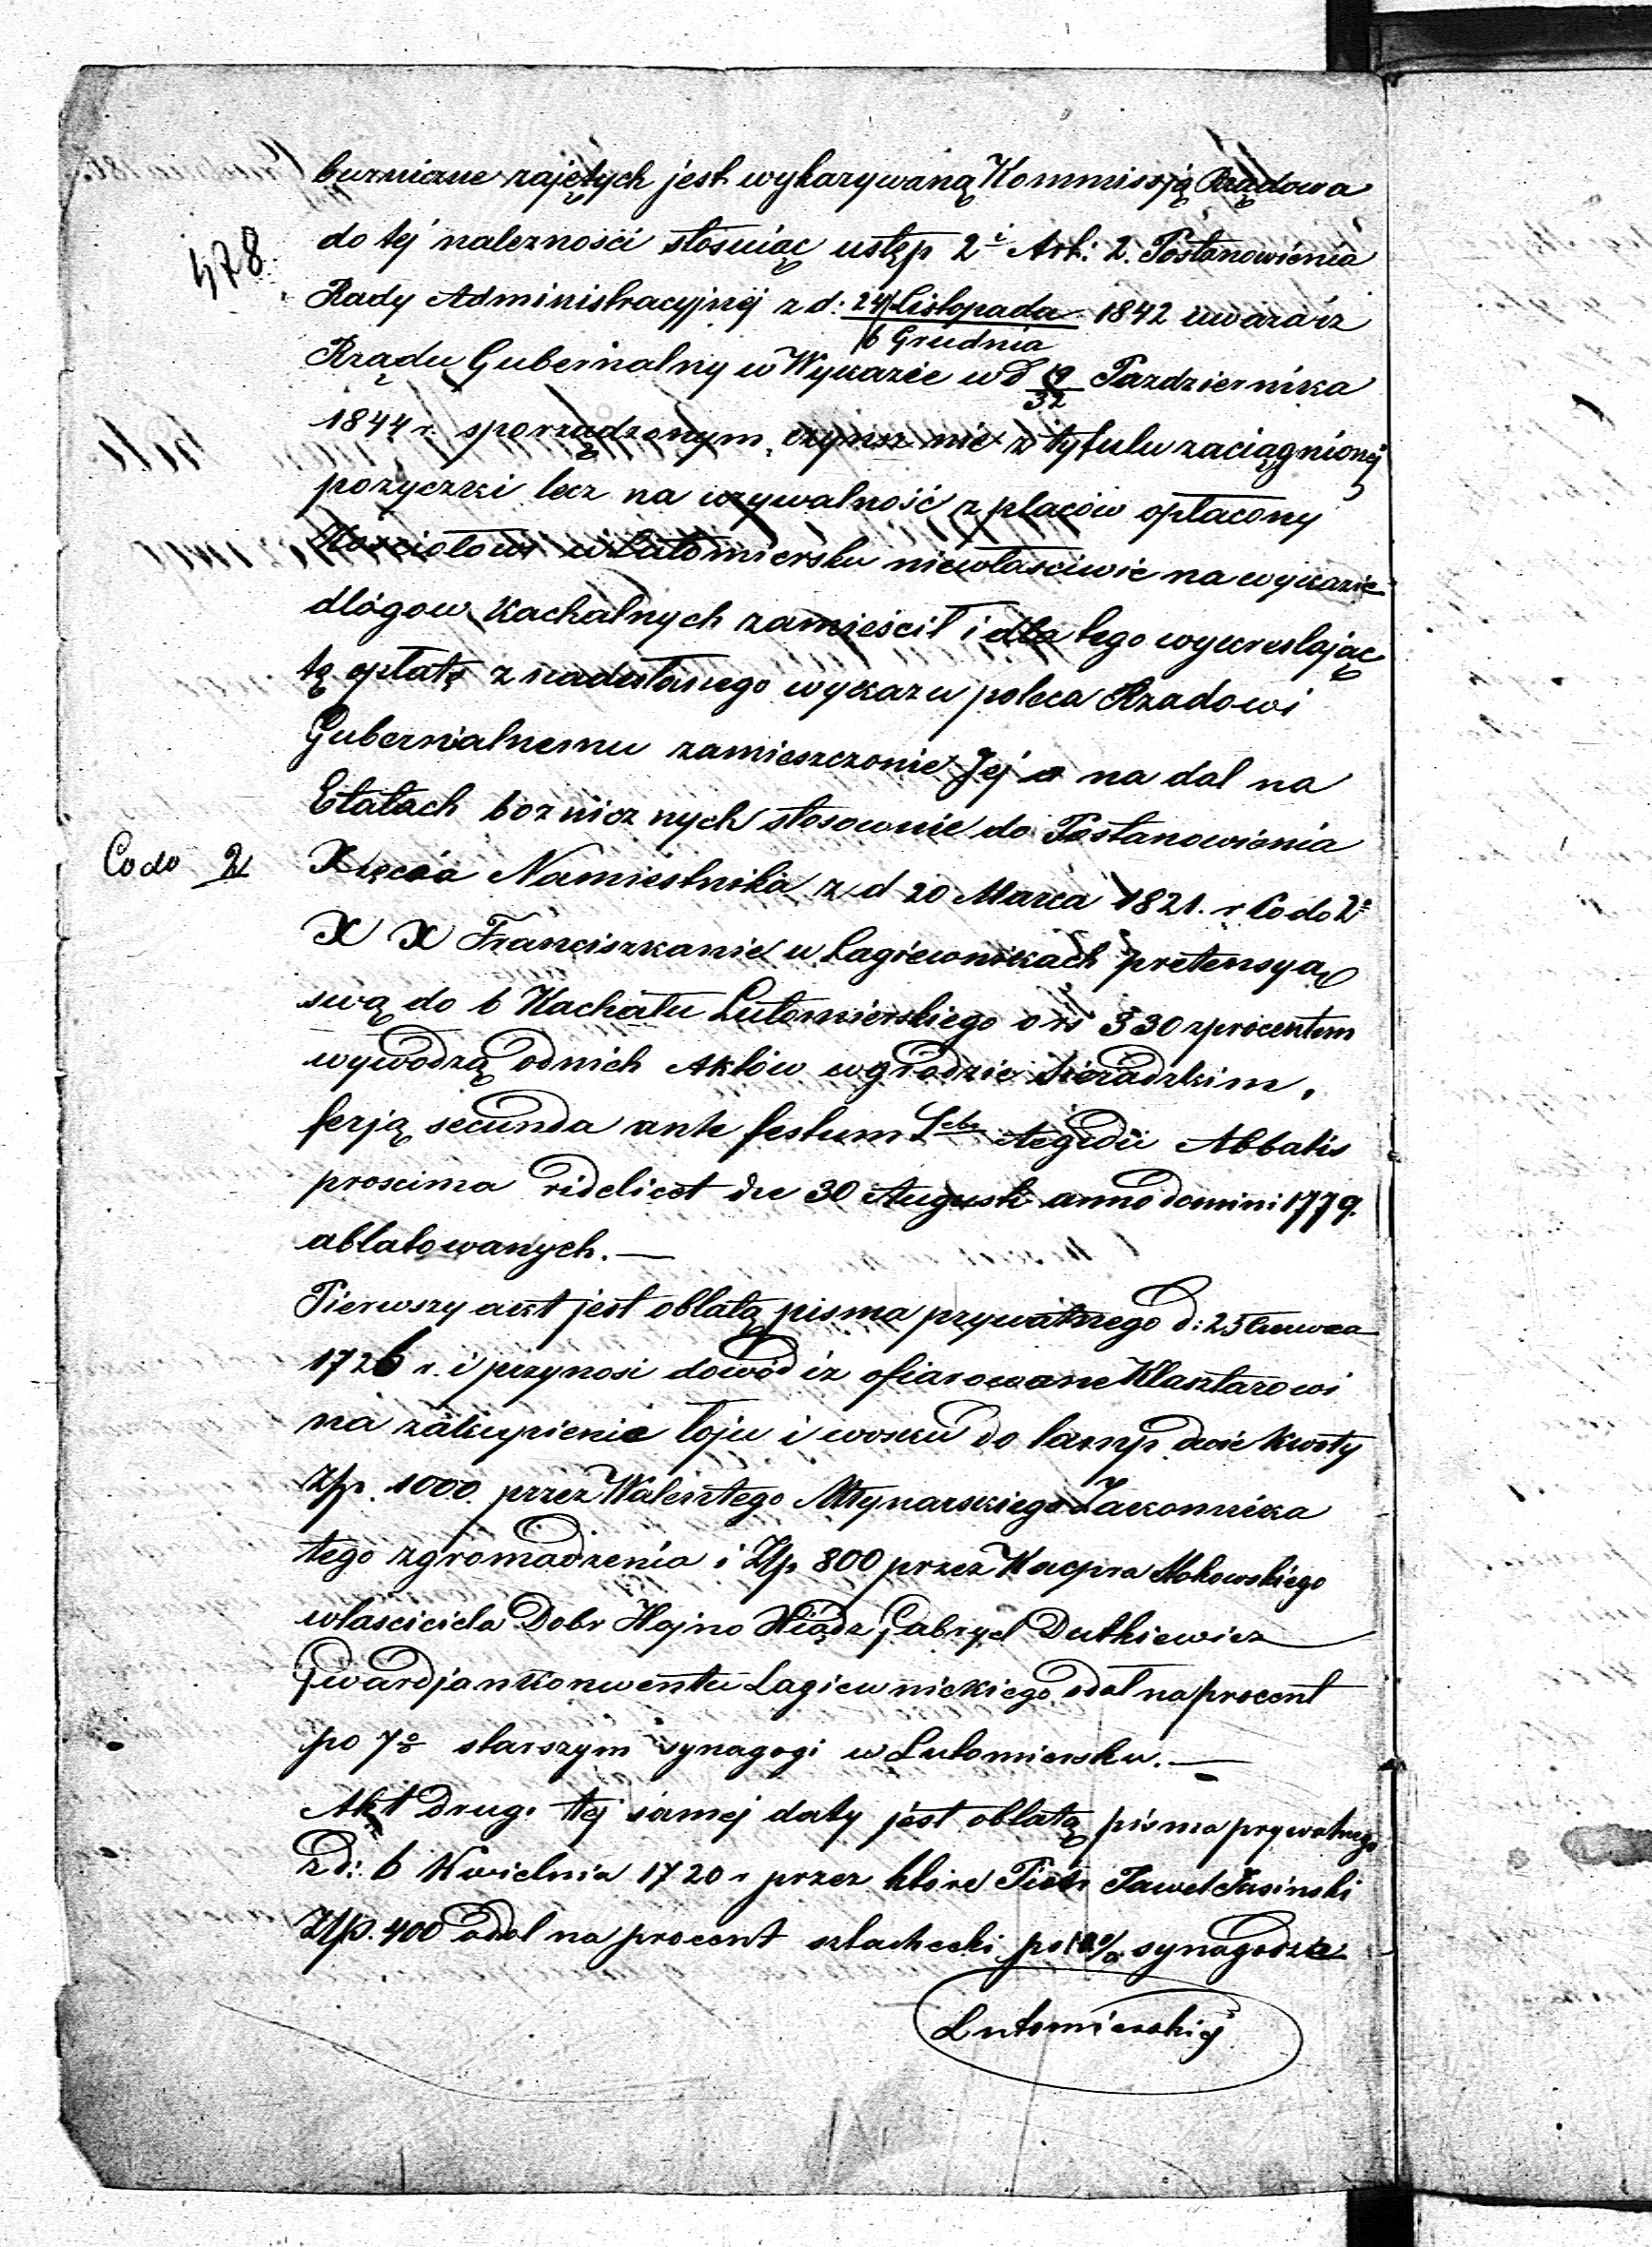 burniczne zajętych jest wykazywaną Kommissją Rządowa
478.
do tej nalezności stosuiąc ustęp 2i Art: 2. Postanowienia
Rady Administracyjnej z d: 24 Listopada / 6 Grudnia 1842 uwaza iz
Rządu Gubernalny w Wykazie w d 19/31 Pazdziernika
1844 r. sporządzonym, czynsz nie z tytulu zaciągnionej
pozyczki lecz na uzywalność z placów opłacony
Kościołowi w Lutomiersku niewłasciwie na wykazie
dlógow Kachalnych zamieścił i dla tego wykreslając
tą opłatę z nadesłanego wykazu poleca Rzadowi
Gubernialnemu zamieszczonie Jej na dal na
Etatach boznicznych stosownie do Postanowienia
Co do 2
Xięcia Namiestnika z d 20 Marca 1821. r Co do 2o
X X Franciszkanie w Łagiewnikach pretensyą
swą do b Kachału Lutomierskiego o rs 330 z procentem
wywodzą od nich Aktów w grodzie Sieradzkim,
ferją secunda ante festum Aegidii Abbatis
proscima videlicet die 30 Augusti anno domini 1779.
ablatowanych.—
Pierwszy akt jest oblatą pisma prywatnego d: 23 Czerwca
1726 r. i przynosi dowód iz ofiarowane Klasztarowi
na zakupienie łoju i wosku do lamp dwie kwoty
Złp. 1000. przez Walentego Młynarskiego Zakonnika
tego zgromadzenia i Złp 800 przez Kacpra Mokowskiego
własciciela Dobr Hajno Xiądz Gabryel Dutkiewicz
Gwardjan Konwentu Łagiewnickiego odał na procent
po 7% starszym synagogi w Lutomiersku.—
Akt drugi tej samej daty jest oblatą pisma prywatnego
z d: 6 Kwietnia 1720 r przez które Piotr Paweł Jasinski
Złp. 400 odał na procent szlachecki po 10% synagodze
Lutomierskiej